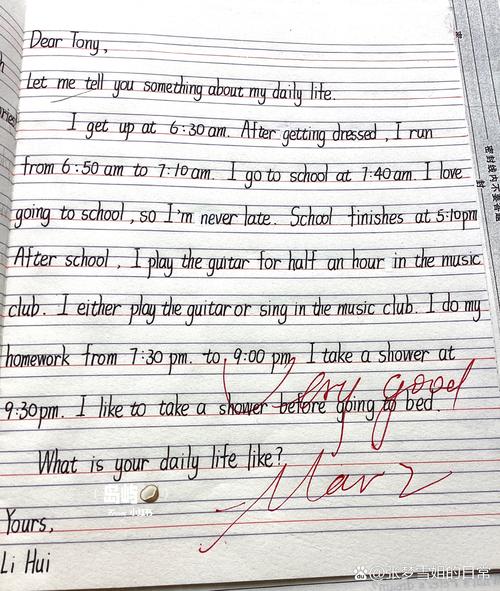 Dear Tony,
Let me tell you something about my daily life.
I get up at 6:30 am. After getting dressed, I run
from 6:50 am to 7:10 am. I go to school at 7:40 am. I love
going to school, so I'm never late. School finishes at 5:10pm
After school, I play the guitar for half an hour in the music
club. I either play the guitar or sing in the music club. I do my
homework from 7:30 pm. to 9:00 pm, I take a shower at
9:30pm. I like to take a shower before going to bed.
Very good
What is your daily life like?
Mar 2
Yours,
Li Hui
密封线内不要答题
@张梦雪姐的日常